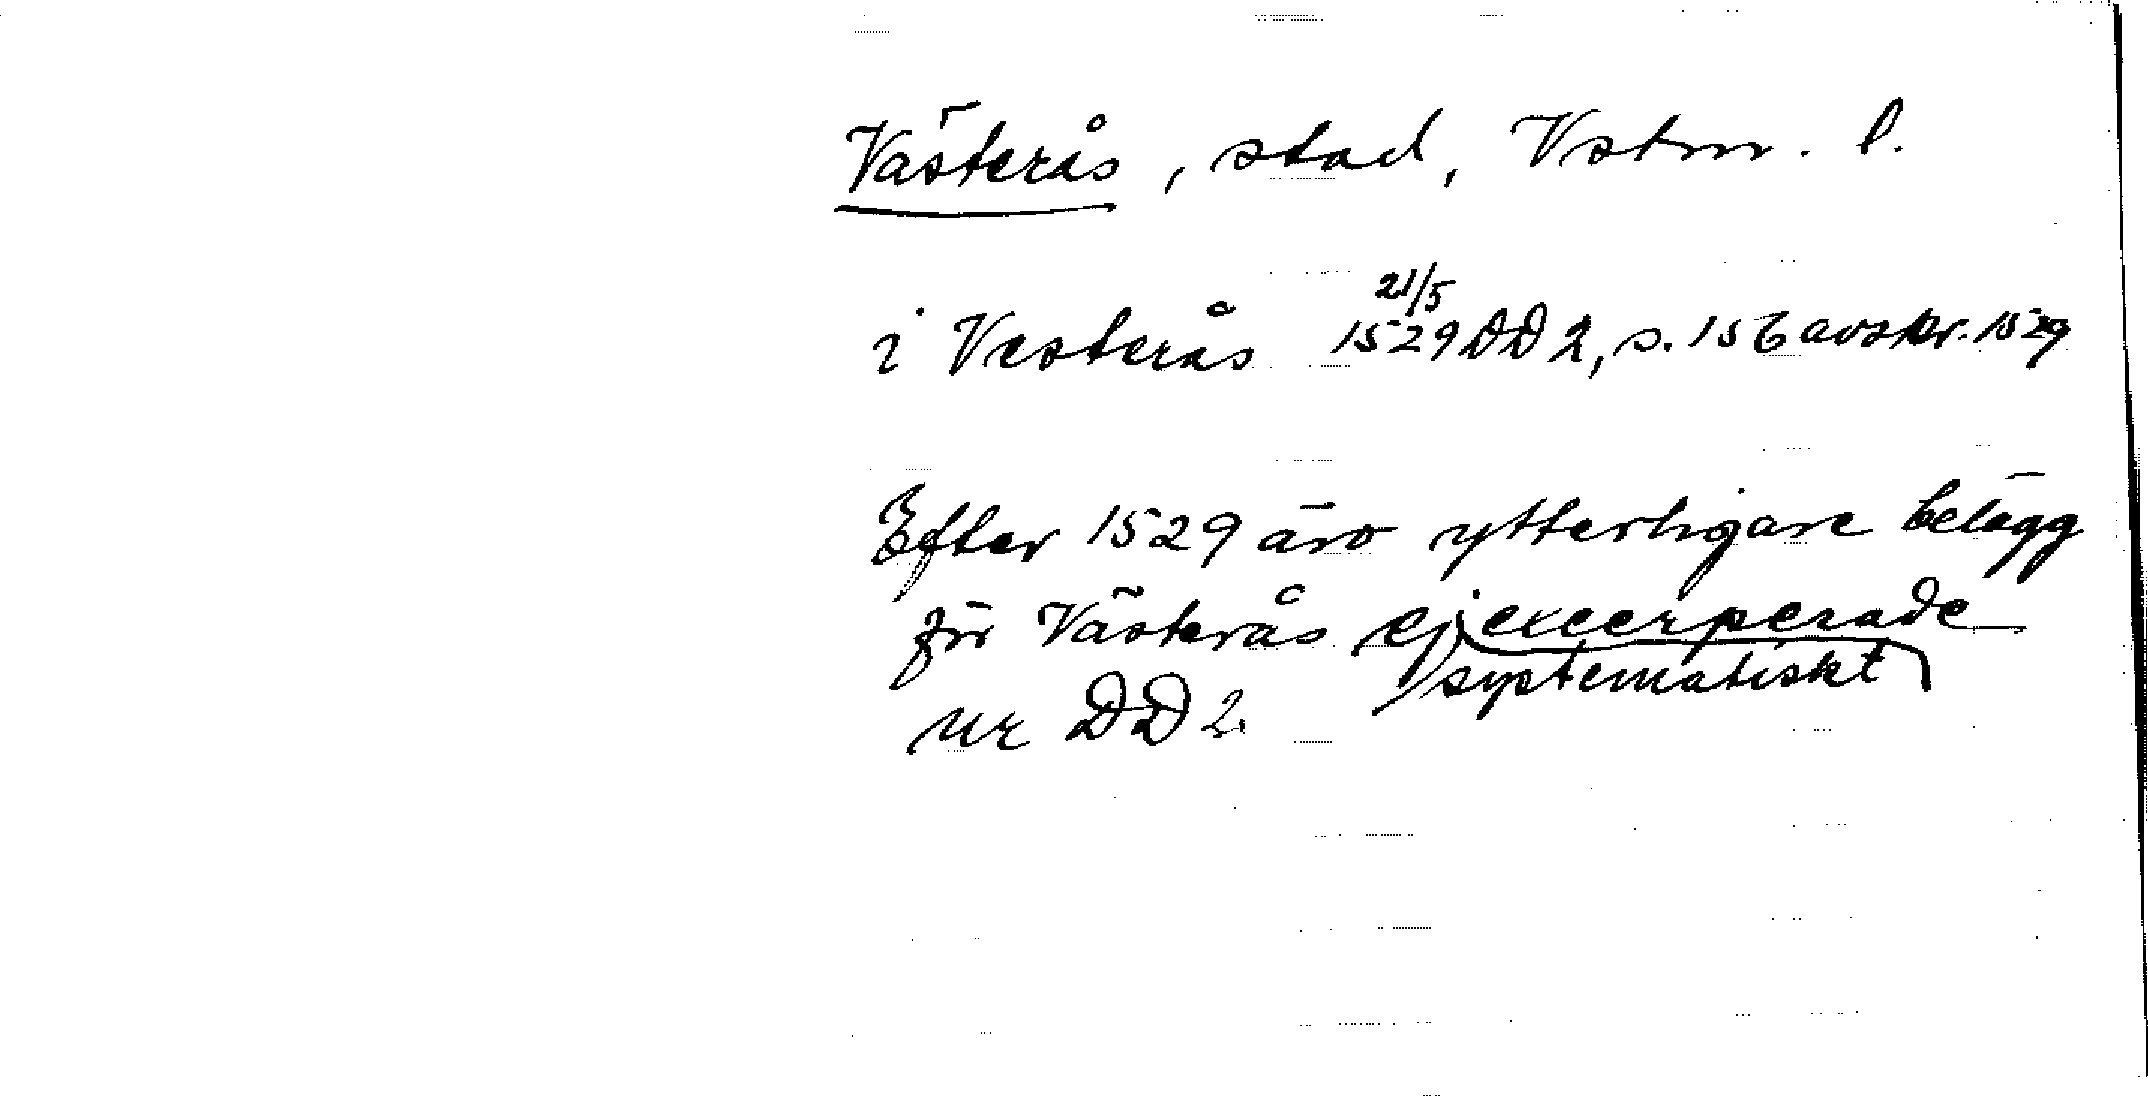 Västerås, stad, Vstm. l.
i Vesterås 21/5 1529 DD 2, s. 156 avskr. 1529
Efter 1529 äro ytterligare belägg
för Västerås ej excerperade
systematiskt
ur DD 2.